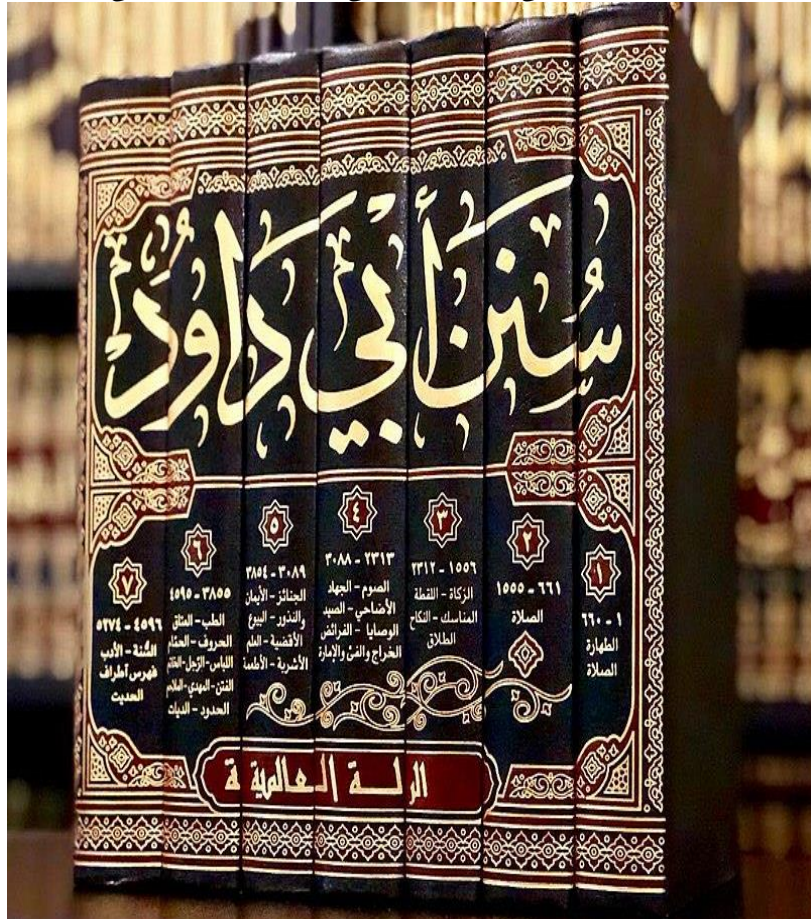 سُنَن أَبي دَاوُد
١
١ - ٦٦٠
الطهارة
الصلاة
٢
٦٦١ - ١٥٥٥
الصلاة
٣
١٥٥٦ - ٢٣١٢
الزكاة - اللقطة
المناسك - النكاح
الطلاق
٤
٢٣١٣ - ٣٠٨٨
الصوم - الجهاد
الأضاحي - الصيد
الوصايا - الفرائض
الخراج والفئ والإمارة
٥
٣٠٨٩ - ٣٨٥٤
الجنائز - الأيمان
والنذور - البيوع
الأقضية - العلم
الأشربة - الأطعمة
٦
٣٨٥٥ - ٤٥٩٥
الطب - العتاق
الحروف - الحمّام
اللباس - الترجل - الخاتم
الفتن - المهدي - الملاحم
الحدود - الديات
٧
٤٥٩٦ - ٥٢٧٤
السُّنة - الأدب
فهرس أطراف
الحديث
العالمية